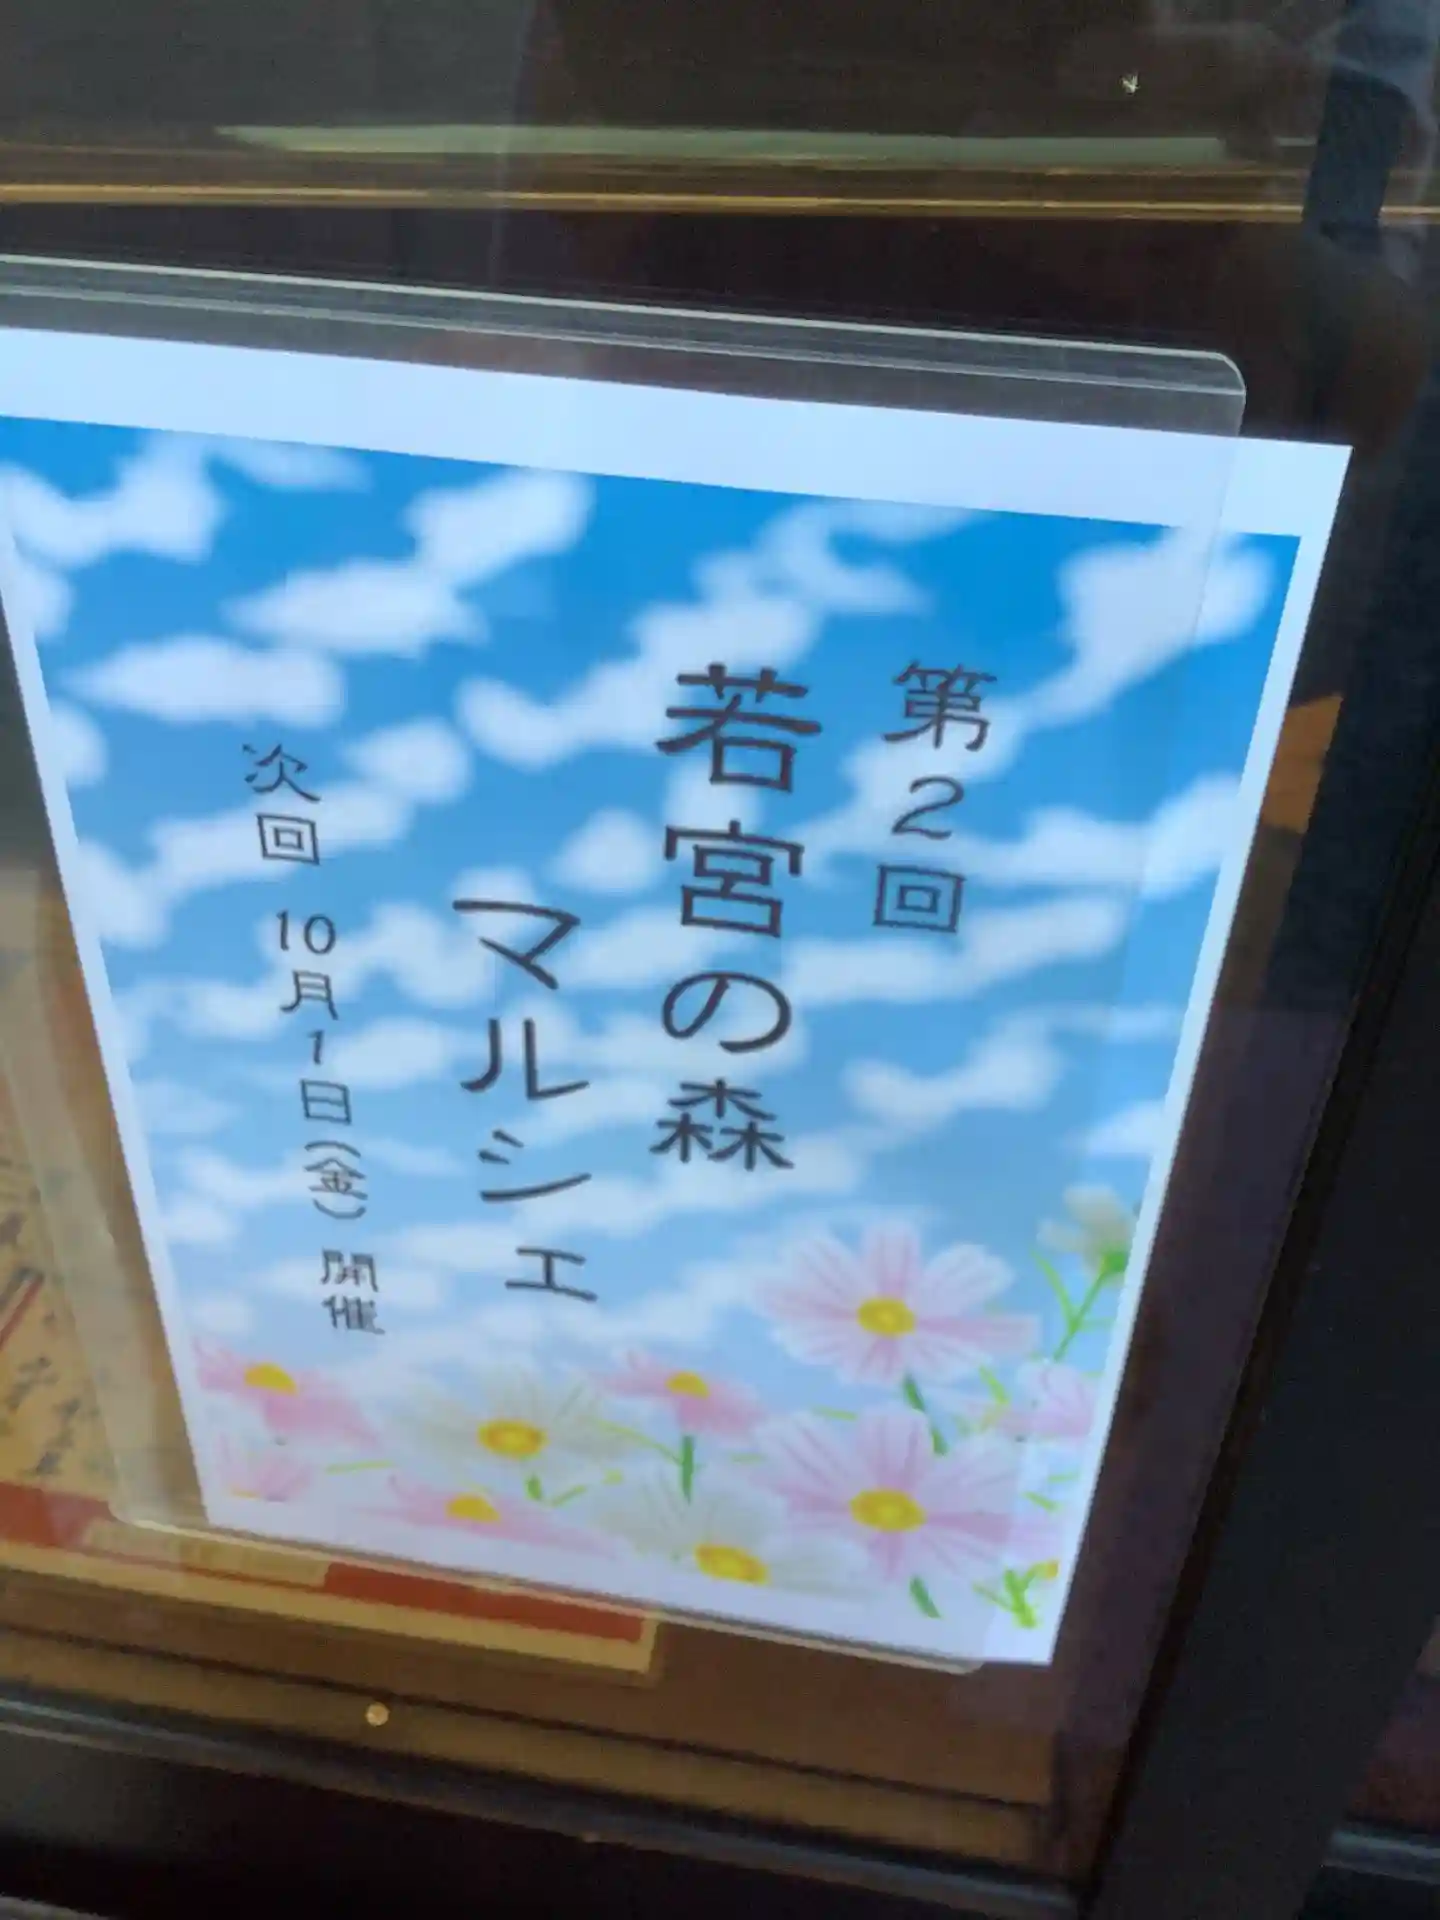 第2回
若宮の森
マルシェ
次回 10月1日(金) 開催